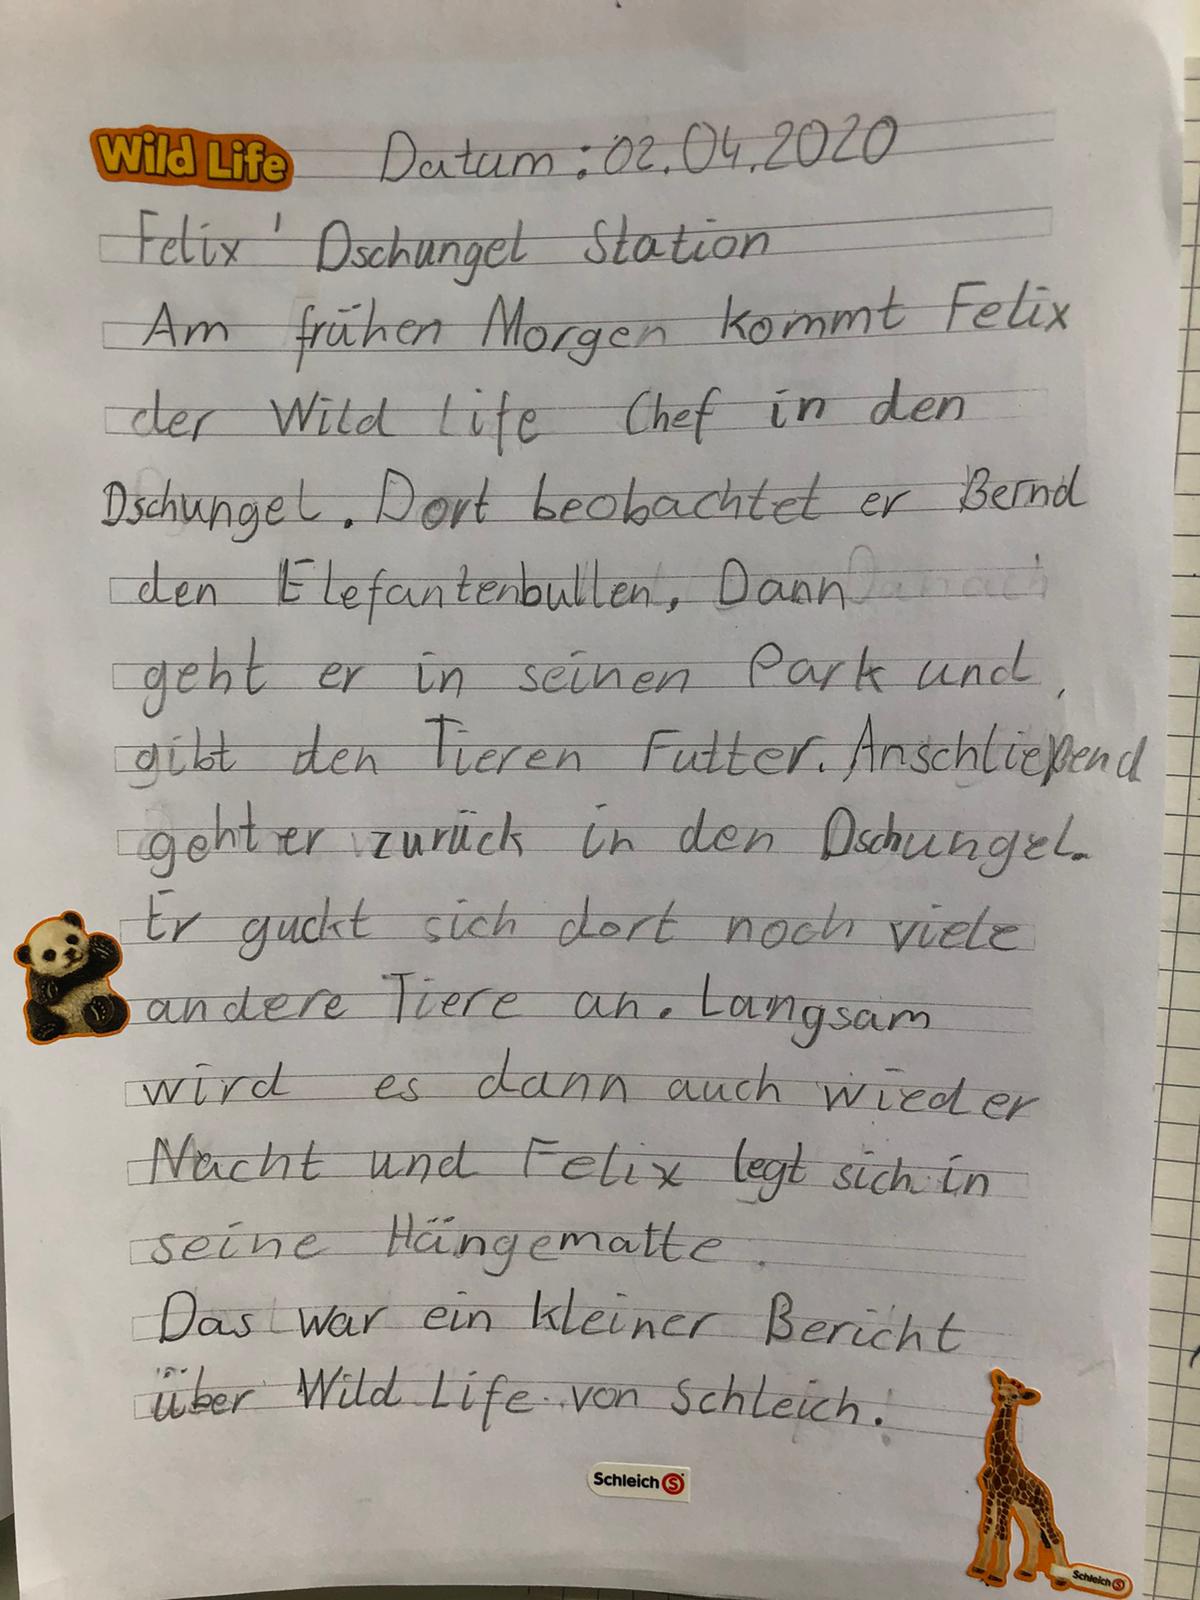 Wild Life Datum: 02.04.2020
Felix' Dschungel Station
Am frühen Morgen kommt Felix
der Wild Life Chef in den
Dschungel. Dort beobachtet er Bernd
den Elefantenbullen. Dann Danach
geht er in seinen Park und
gibt den Tieren Futter. Anschließend
geht er zurück in den Dschungel.
Er guckt sich dort noch viele
andere Tiere an. Langsam
wird es dann auch wieder
Nacht und Felix legt sich in
seine Hängematte.
Das war ein kleiner Bericht
über Wild Life von Schleich.
Schleich S
Schleich S